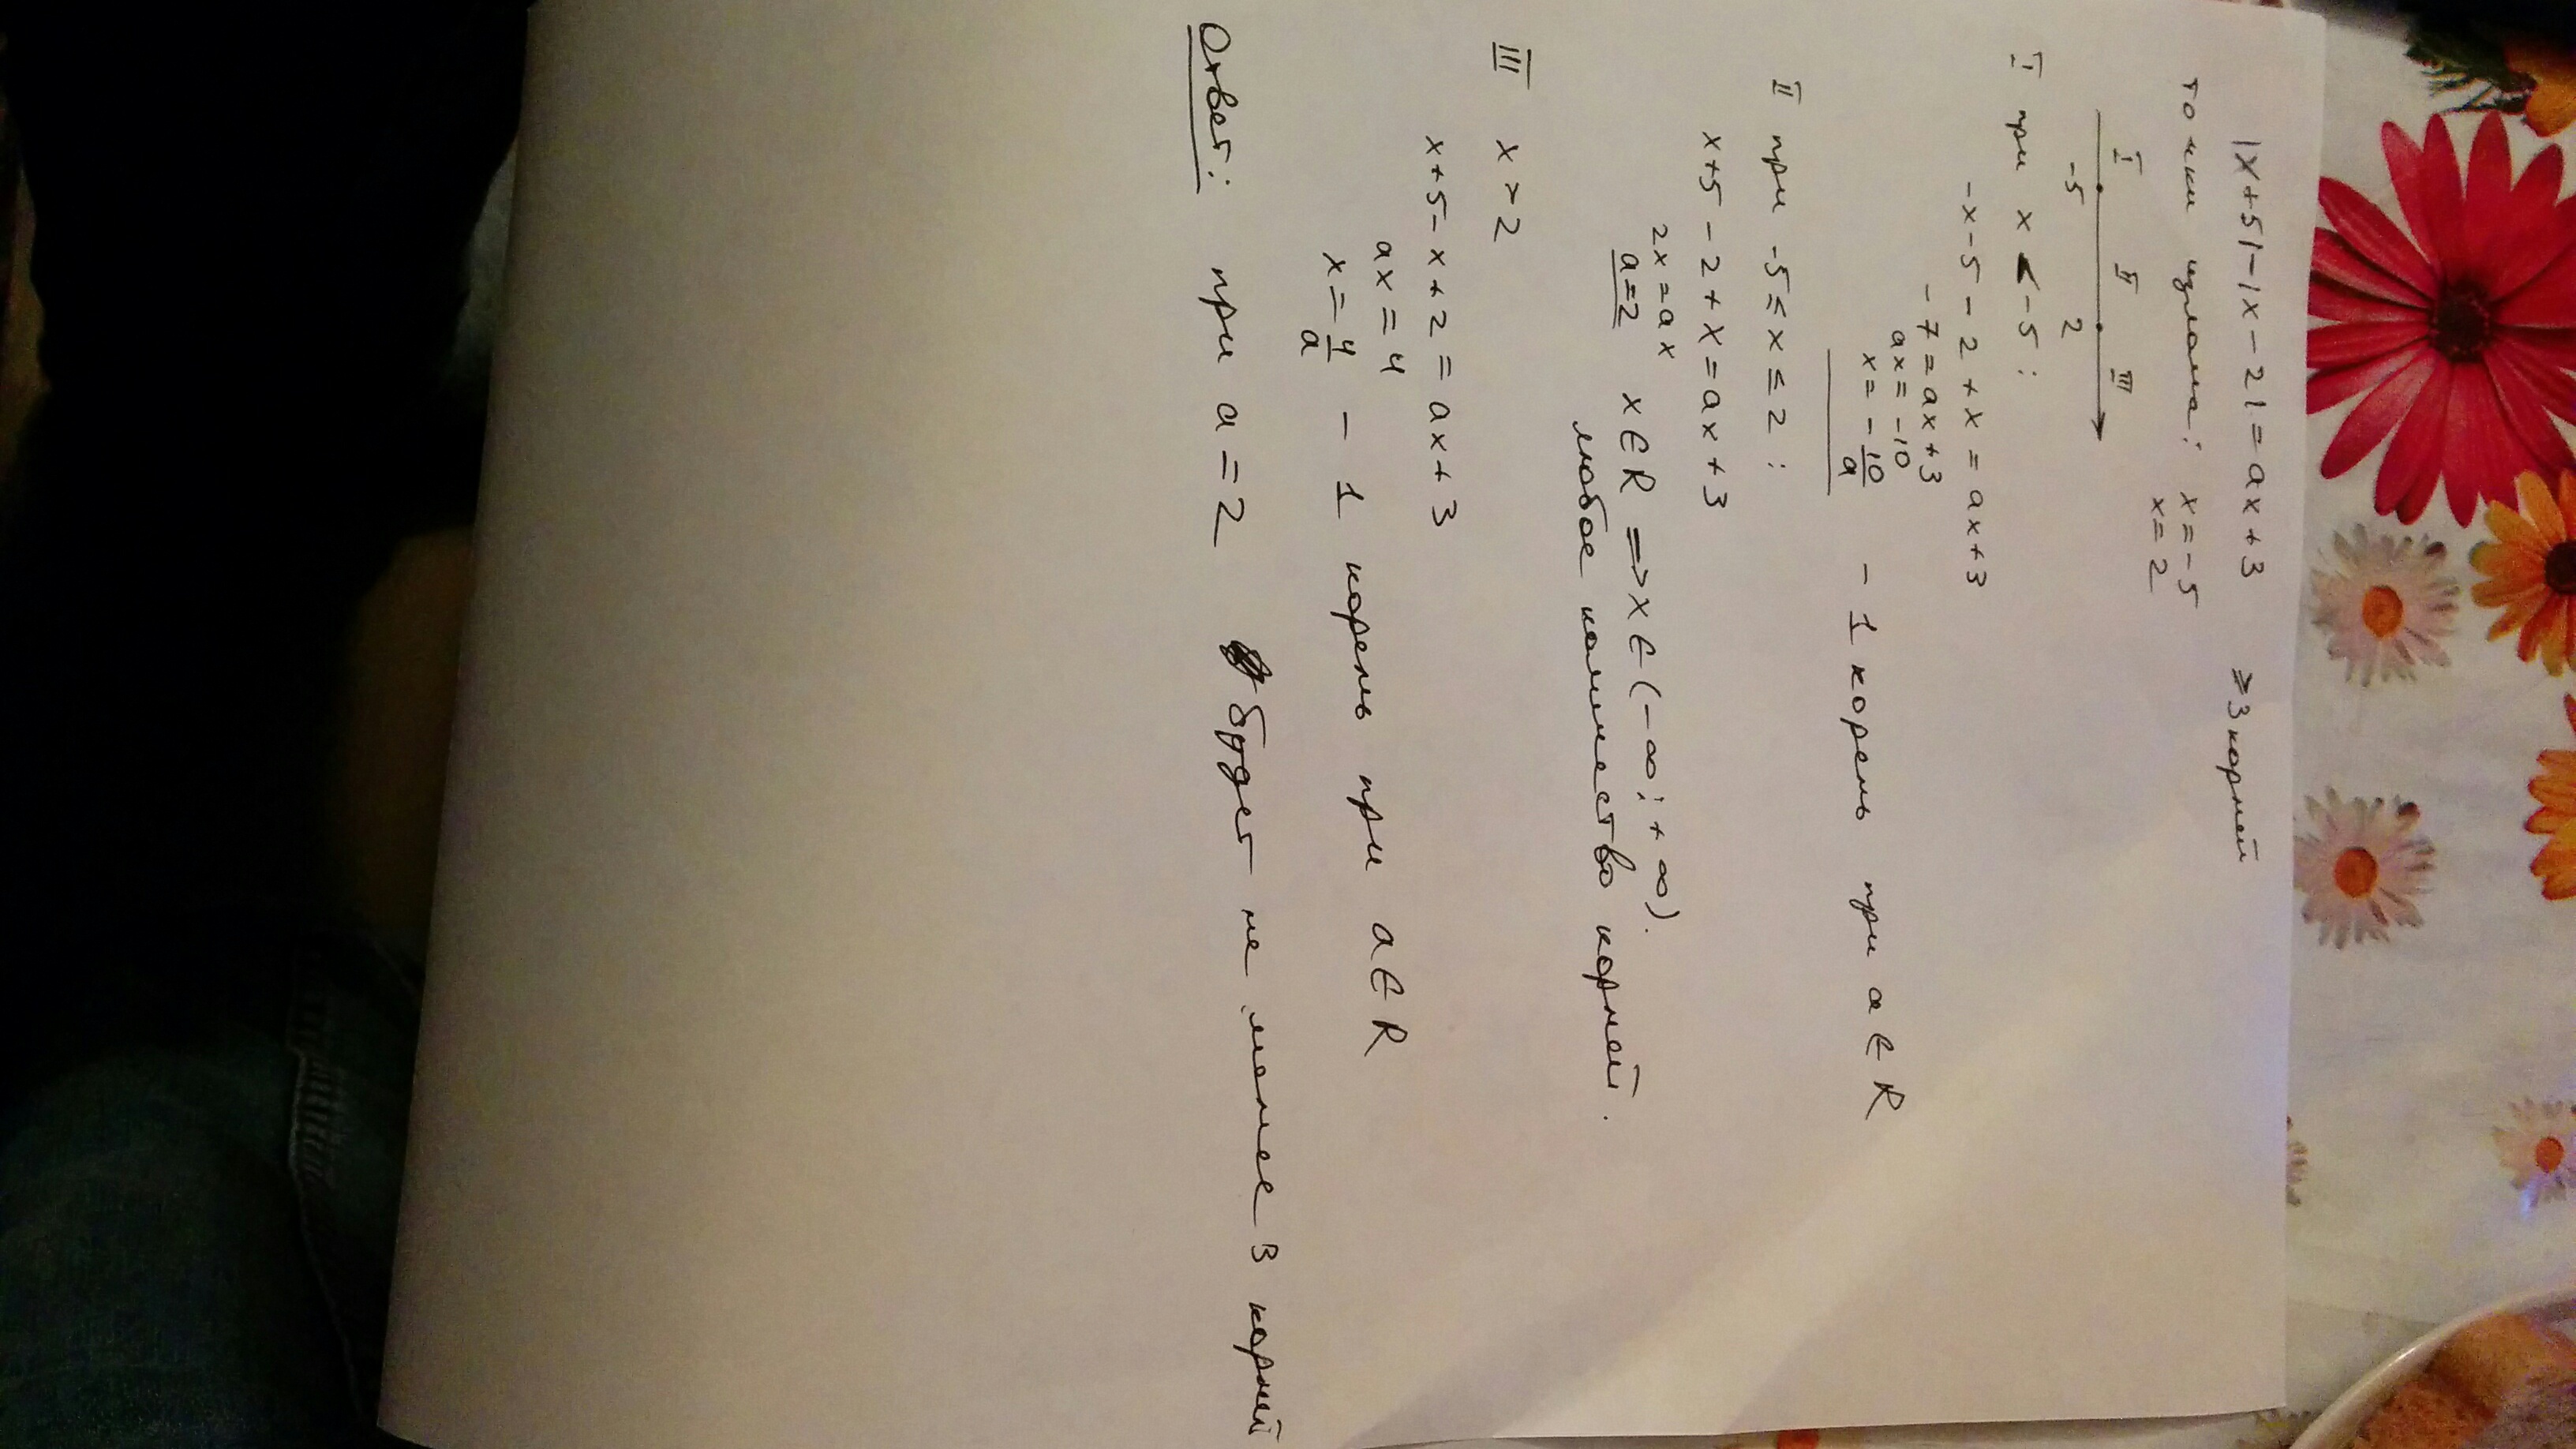 |x+5|-|x-2|=ax+3 ≥3 корней
точки излома: x=-5
x=2
I II III
-5 2
I при x<-5:
-x-5-2+x=ax+3
-7=ax+3
ax=-10
x=-10/a - 1 корень при a∈R
II при -5≤x≤2:
x+5-2+x=ax+3
2x=ax
a=2 x∈R => x∈(-∞;+∞).
любое количество корней.
III x>2
x+5-x+2=ax+3
ax=4
x=4/a - 1 корень при a∈R
Ответ: при a=2 будет не менее 3 корней